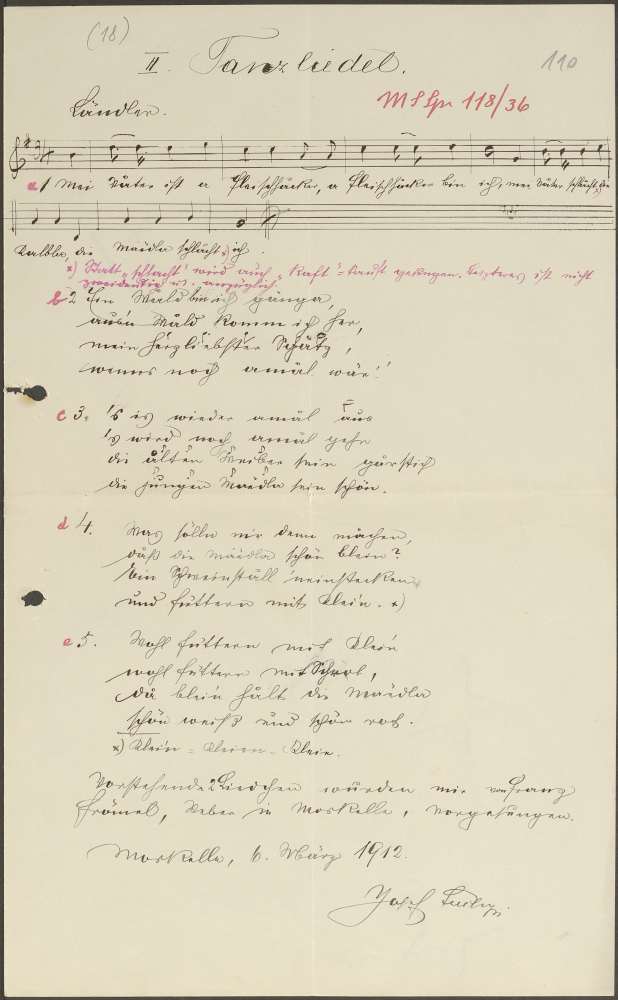 (18)
II. Tanzliedel.
110
Ländler.
MS Spr 118/36
a 1 Mei Våter ist a Fleischhåcker, a Fleischhåcker bin ich; mei Våter schlåcht die
Kalbla, die Mäidla schlåcht x) ich.
x) Statt „schlacht" wird auch „kaft" = kauft gesungen. Letzteres ist nicht
zweideutig u. anzüglich.
b 2 Ein Wåld bin ich gånga,
aus'n Wåld komm ich her,
mein herzliebster Schåtz,
wenns noch amål wär'!
c 3. 's is wieder amål aus
's wird noch amål gehn
die ålten Weiber sein gårstich
die jungen Mäidla sein schön.
d 4. Was sölln mir denn måchen,
dåß die Mäidla schön blein?
Ein Schweinståll 'neinstecken
und füttern mit Klei'n. x)
e 5. Wohl füttern mit Klei'n
wohl füttern mit Schrot,
då blei'n hålt die Mäidla
schön weiß und schön rot.
x) Klei'n = Kleien - Kleie.
Vorstehende 2 Liedchen wurden mir von Franz
Frömel, Weber in Moskelle, vorgesungen.
Moskelle, 6. März 1912.
Josef